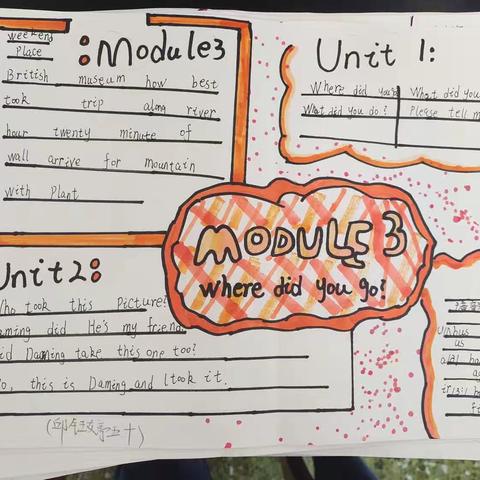 weekend
place
:Module3
British museum how best
took trip along river
hour twenty minute of
wall arrive for mountain
with plant
Unit 1:
Where did you What did you
What did you do? Please tell m
MODULE 3
where did you go?
Unit2:
Who took this Picture?
aming did He's my friend
id Daming take this one too?
o, this is Daming and I took it.
us